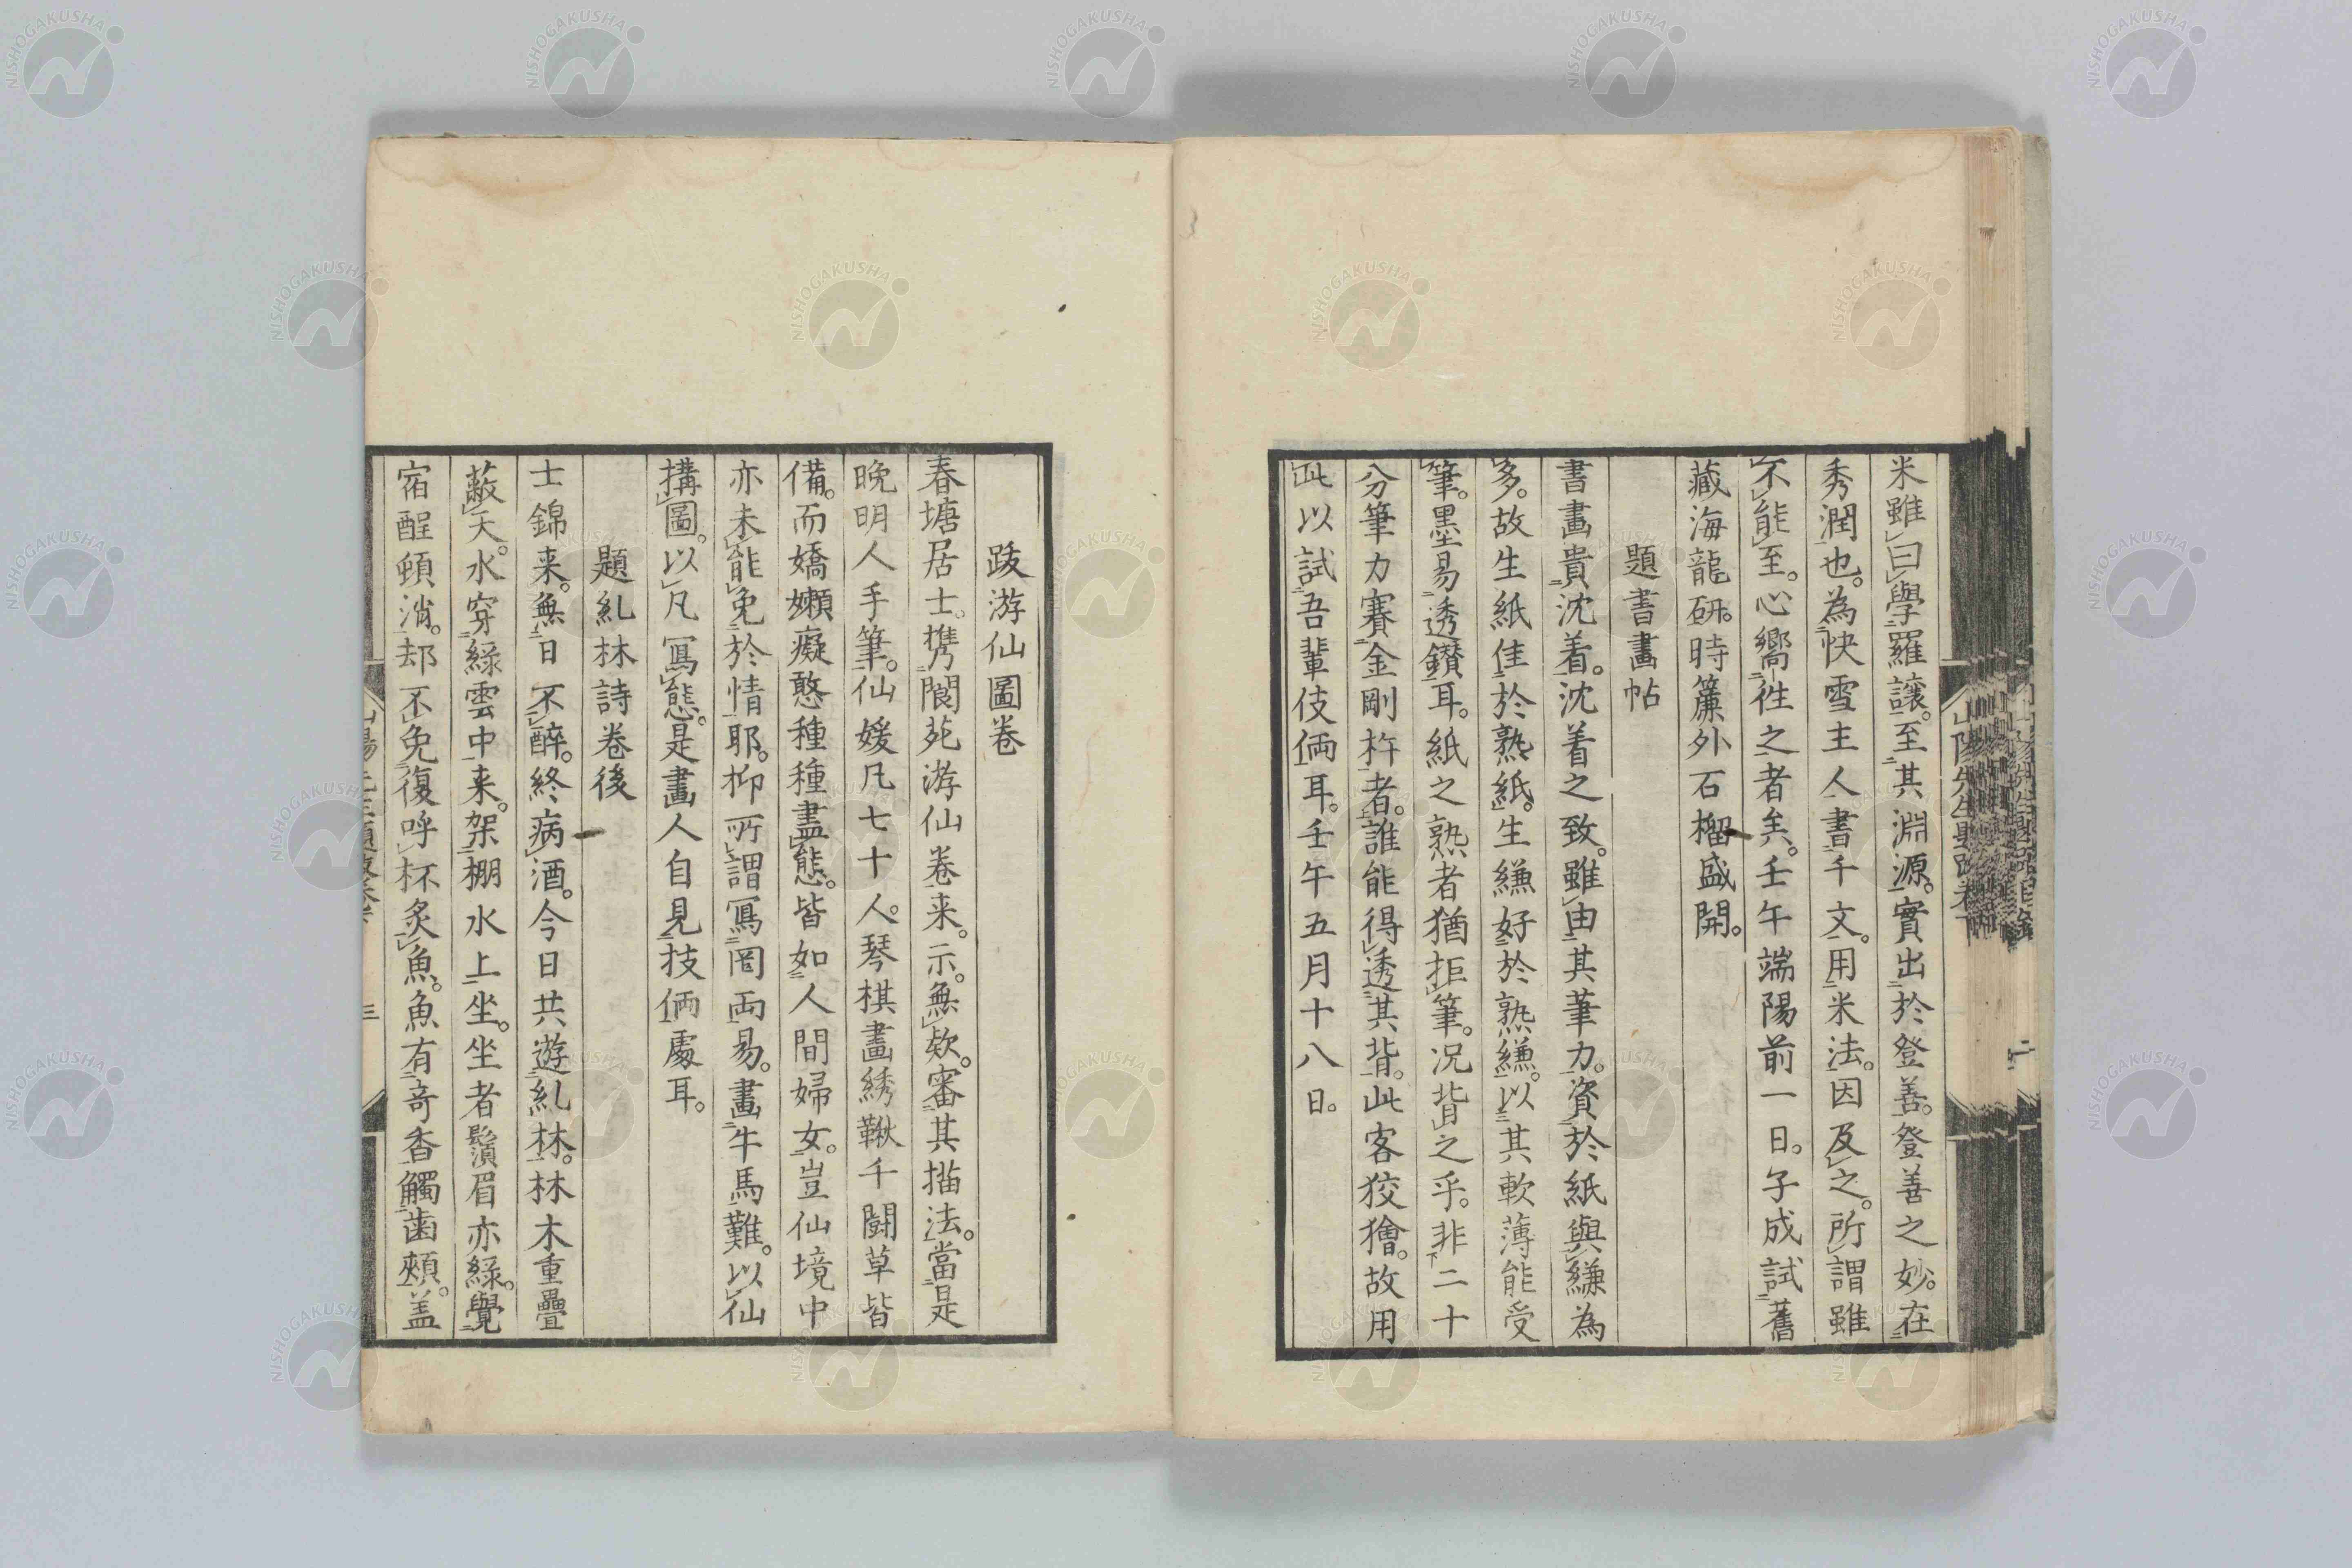 米雖曰學羅讓。至其淵源。實出於登善。登善之妙。在
秀潤也。為快雪主人書千文。用米法。因及之。所謂雖
不能至。心嚮徃之者矣。壬午端陽前一日。子成試舊
藏海龍研。時簾外石榴盛開。
題書畫帖
書畫貴沈着。沈着之致。雖由其筆力。資於紙與縑為
多。故生紙佳於熟紙。生縑好於熟縑。以其軟薄能受
筆。墨易透鑚耳。紙之熟者猶拒筆。況背之乎。非二十
分筆力賽金剛杵者。誰能得透其背。此客狡獪。故用
此以試吾輩伎倆耳。壬午五月十八日。
跋游仙圖卷
春塘居士。携閬苑游仙卷来。示。無欵。審其描法。當是
晩明人手筆。仙媛凡七十人。琴棋畫綉鞦千闘草皆
備。而嬌嬾癡憨種種盡態。皆如人間婦女。豈仙境中
亦未能免於情耶。抑所謂寫罔両易。畫牛馬難。以仙
搆圖。以凡寫態。是畫人自見技倆處耳。
題糺林詩卷後
士錦来。無日不醉。終病酒。今日共遊糺林。林木重疊
蔽天。水穿緑雲中来。架棚水上坐。坐者鬚眉亦緑。覺
宿酲頓消。却不免復呼杯炙魚。魚有竒香觸歯頰。盖
NISHOGAKUSHA